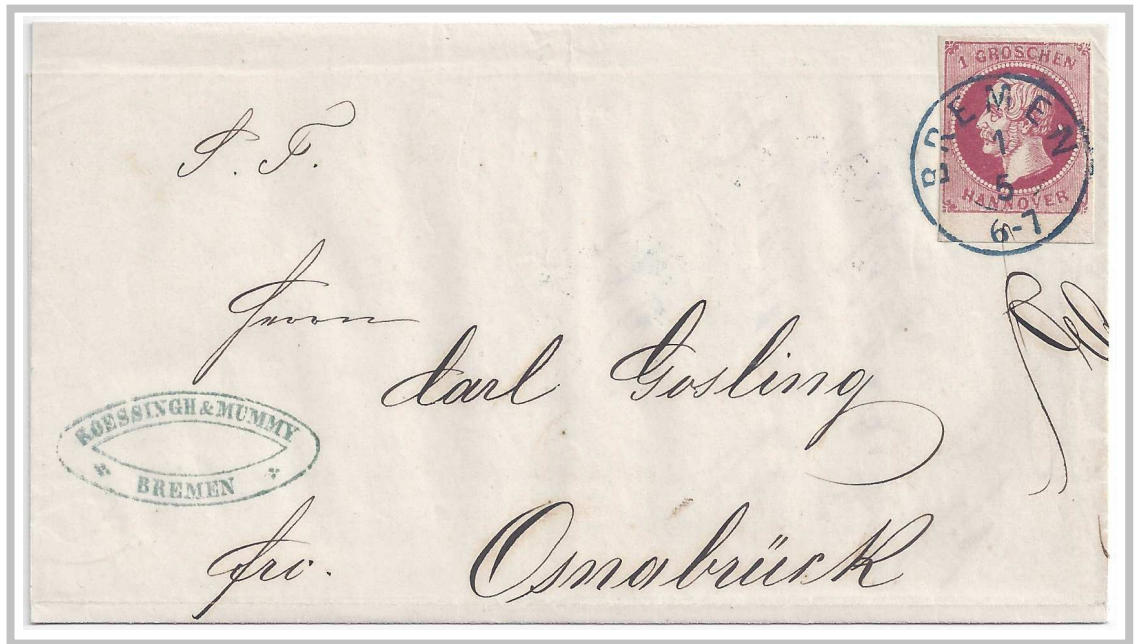 1 GROSCHEN
HANNOVER
BREMEN
1
5
6-7
P. F.
Herrn
Carl Gosling
KOESSINGH & MUMMY
BREMEN
fro. Osnabrück